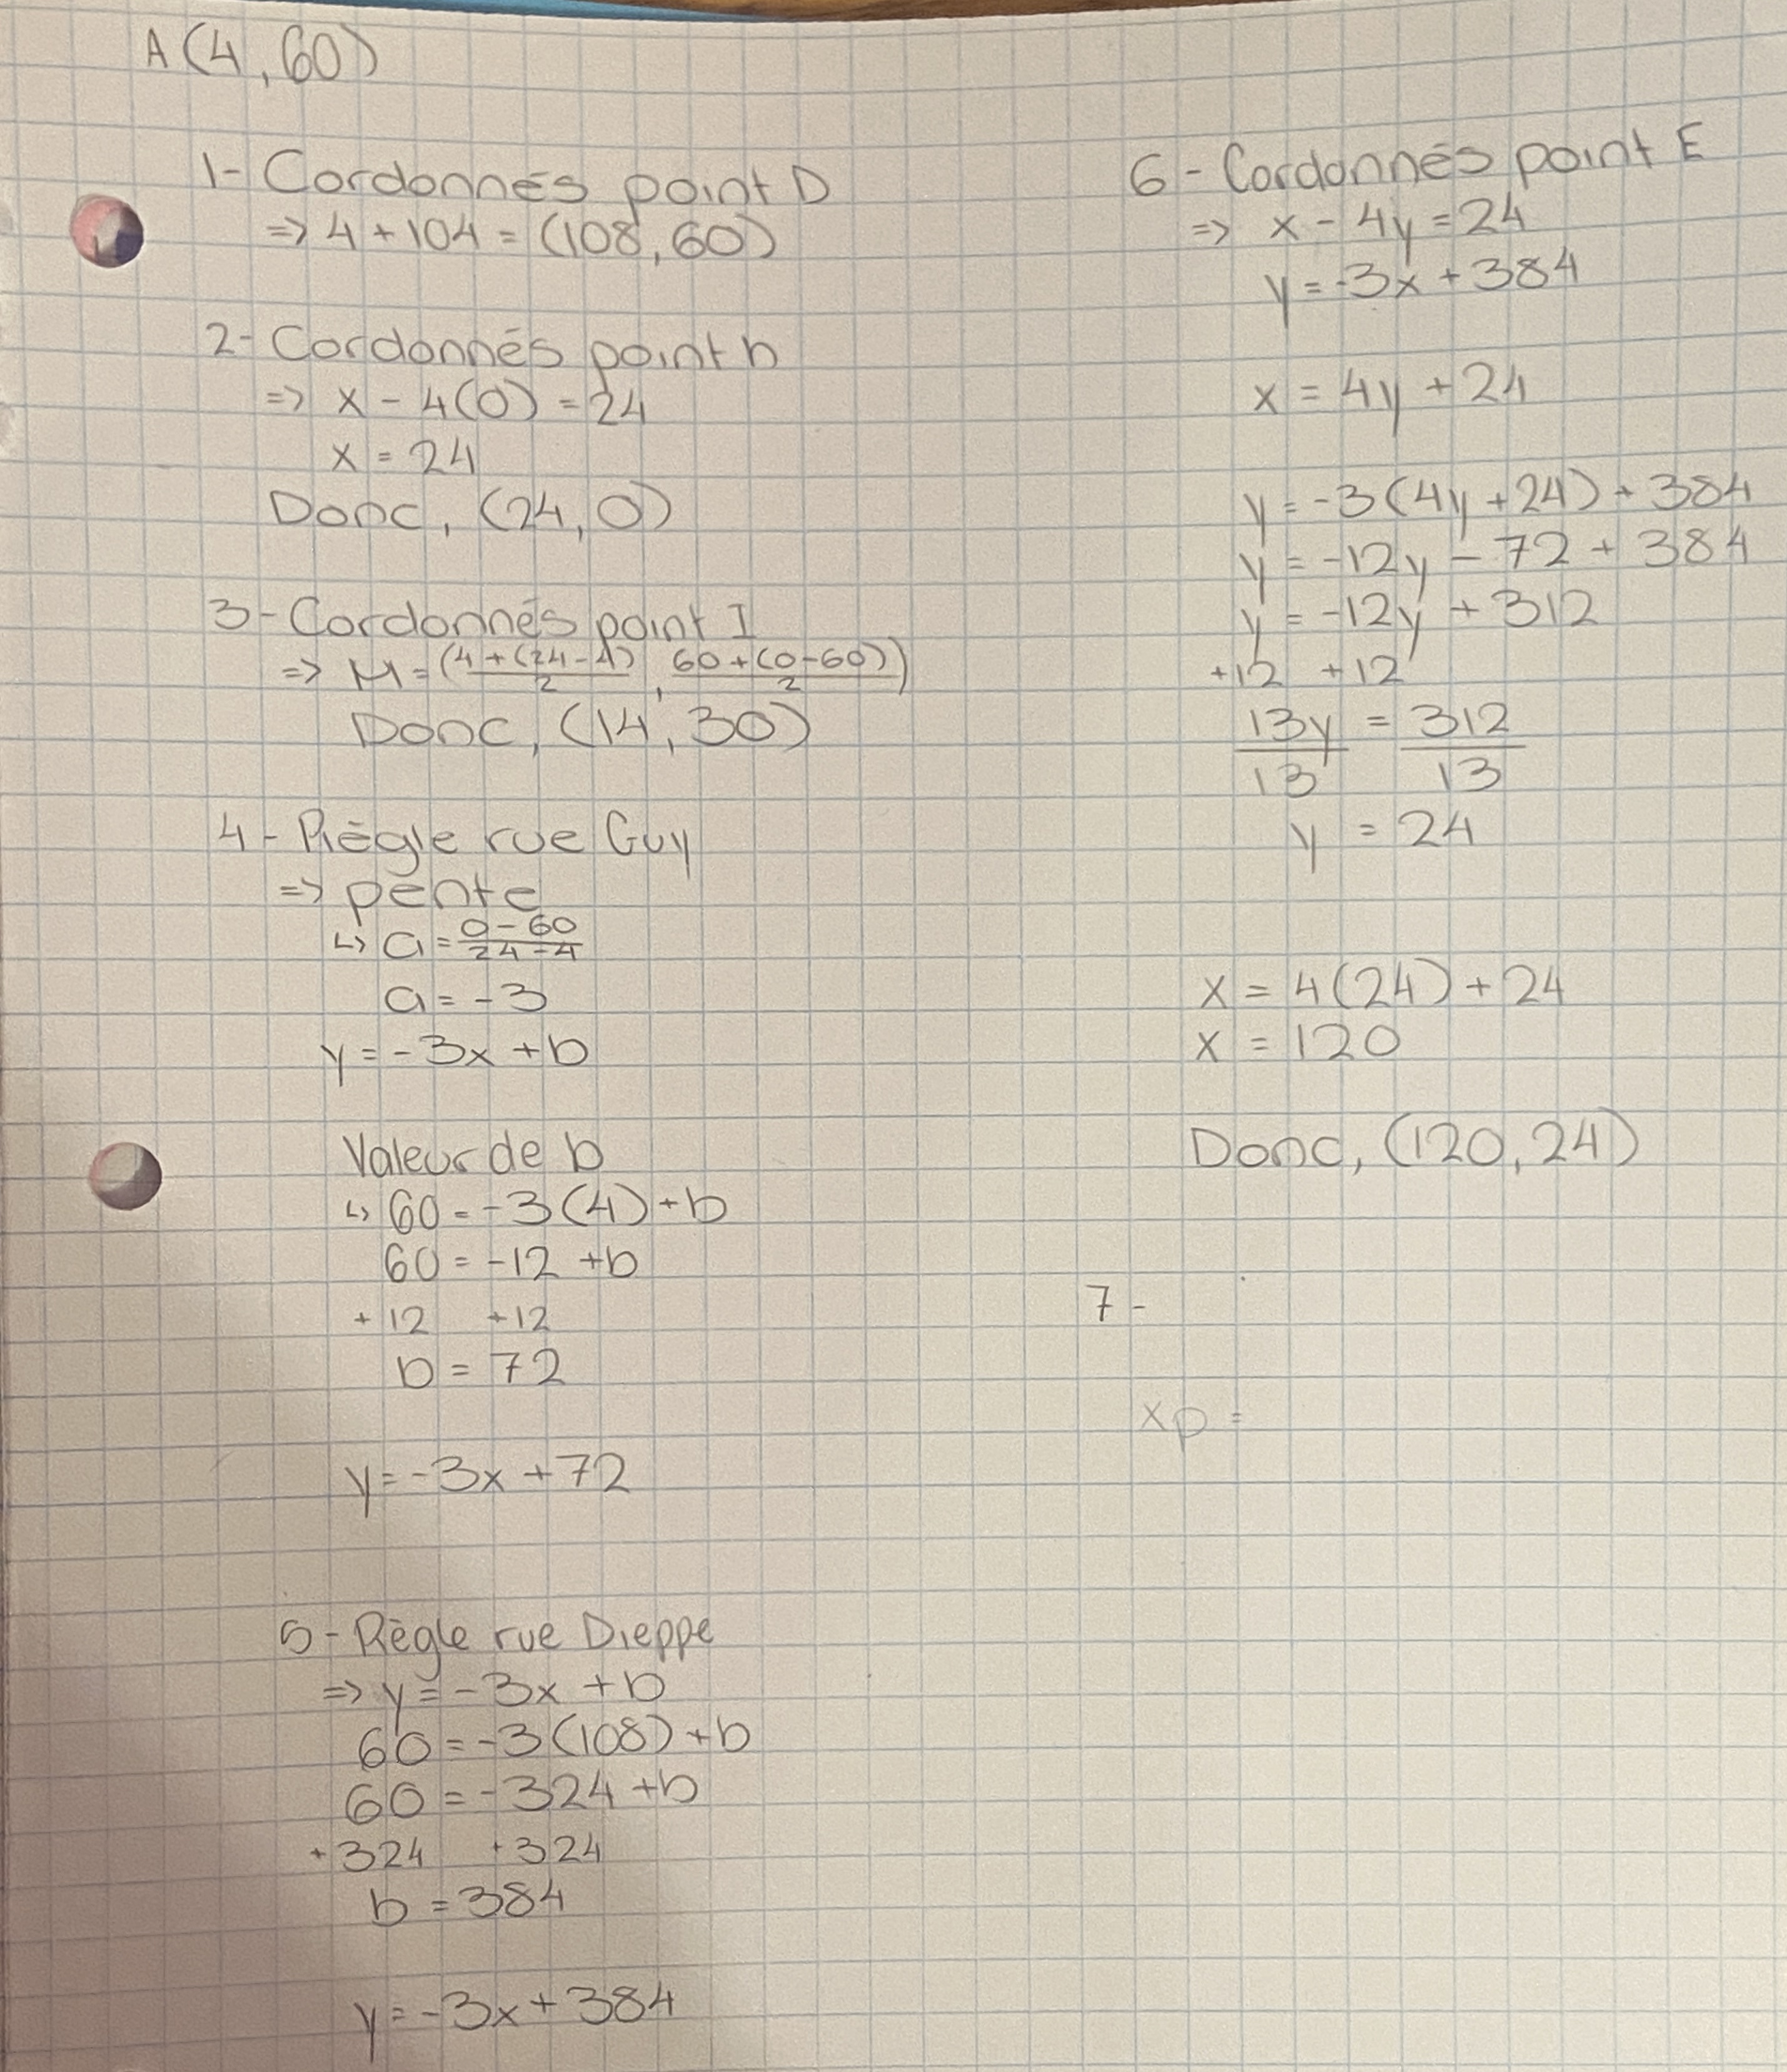 A(4,60)
1- Cordonnés point D
=> 4 + 104 = (108, 60)
2- Cordonnés point h
=> x - 4(0) = 24
x = 24
Donc, (24, 0)
3- Cordonnés point I
=> M = (4 + (24-4)/2, 60 + (0-60)/2)
Donc, (14, 30)
4- Règle rue Guy
=> pente
↳ a = 0-60/24-4
a = -3
y = -3x + b
Valeur de b
↳ 60 = -3(4) + b
60 = -12 + b
+12 +12
b = 72
y = -3x + 72
5- Règle rue Dieppe
=> y = -3x + b
60 = -3(108) + b
60 = -324 + b
+324 +324
b = 384
y = -3x + 384
6- Cordonnés point E
=> x - 4y = 24
y = -3x + 384
x = 4y + 24
y = -3(4y + 24) + 384
y = -12y - 72 + 384
y = -12y + 312
+12 +12
13y/13 = 312/13
y = 24
x = 4(24) + 24
x = 120
Donc, (120, 24)
7-
xp =